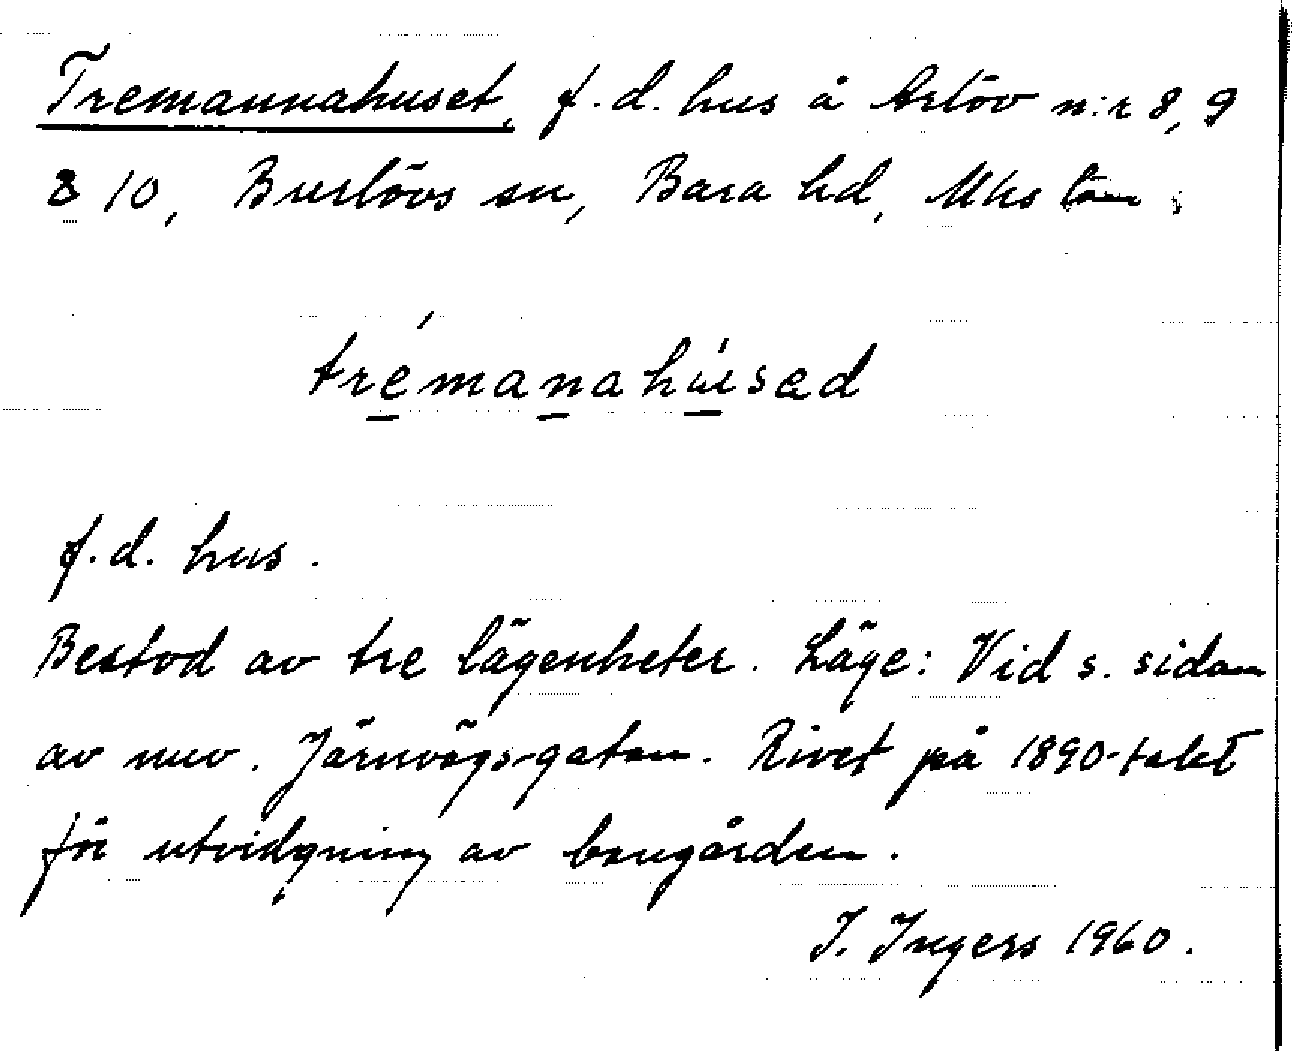 Tremannahuset, f.d. hus å Arlöv n:r 8, 9
& 10, Burlövs sn, Bara hd, Mhs län.
trémanahúsed
f.d. hus.
Bestod av tre lägenheter. Läge: Vid s. sidan
av nuv. Järnvägsgatan. Rivet på 1890-talet
för utvidgning av bangården.
I. Ingers 1960.